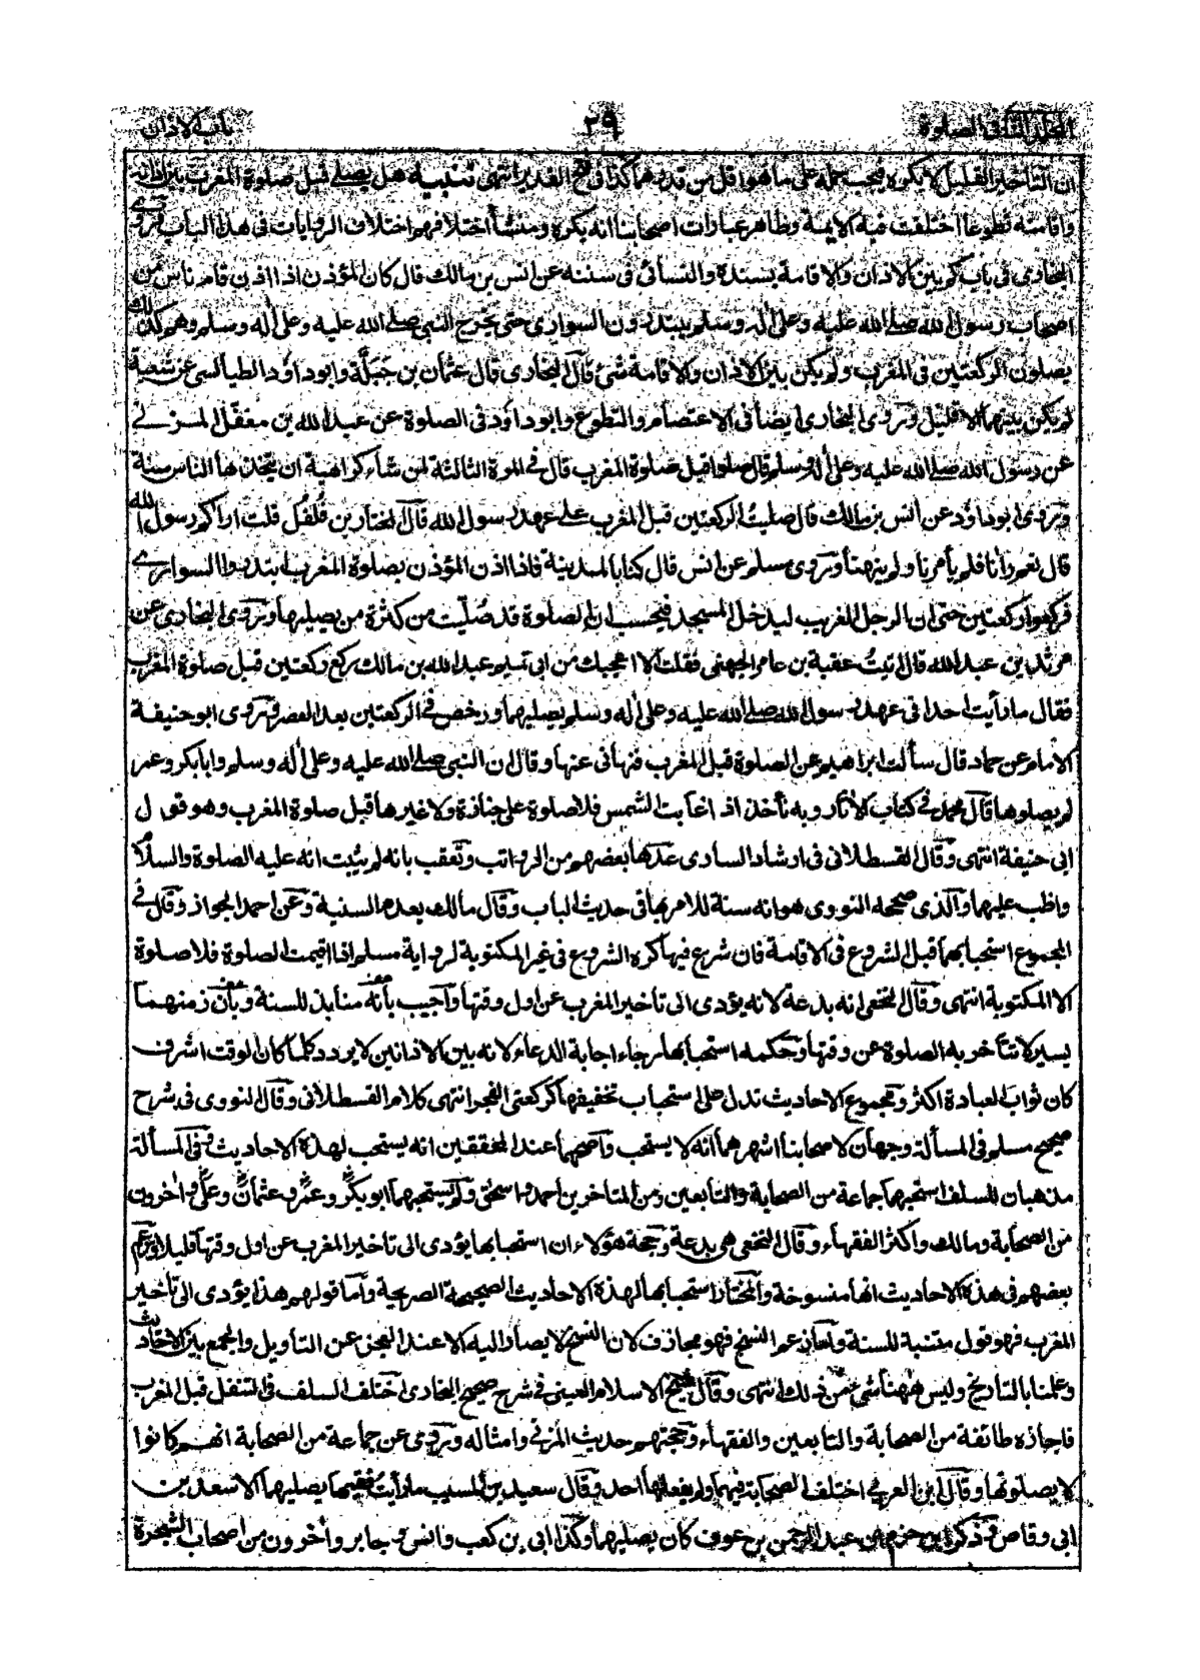 المجلد الثانى فى الصلوة
٢٩
باب الاذان
ان التاخير القليل لا يكره فيجب حمله على ما هو اقل من قدرهما كذا فى فتح القدير انتهى تنبيه هل يصلى قبل صلوة المغرب بين اذانه
واقامته تطوعا اختلفت فيه الايمة وظاهر عبارات اصحابنا انه يكره ومنشأ اختلافهم اختلاف الروايات فى هذا الباب فروى
البخارى فى باب كم بين الاذان والاقامة بسنده والنسائى فى سننه عن انس بن مالك قال كان المؤذن اذا اذن قام ناس من
اصحاب رسول الله صلى الله عليه وعلى أله وسلم يبتدرون السوارى حتى يخرج النبى صلى الله عليه وعلى أله وسلم وهم كذلك
يصلون الركعتين فى المغرب ولم يكن بين الاذان والاقامة شئ قال البخارى قال عثمان بن جبلة وابو داود الطيالسى عن شعبة
لم يكن بينهما الا قليل وروى البخارى ايضا فى الاعتصام والتطوع وابو داود فى الصلوة عن عبد الله بن مغفل المزنى
عن رسول الله صلى الله عليه وعلى أله وسلم قال صلوا قبل صلوة المغرب قال فى المرة الثالثة لمن شاء كراهية ان يتخذها الناس سنة
وروى ابو داود عن انس بن مالك قال صليت الركعتين قبل المغرب على عهد رسول الله قال المختار بن فلفل قلت اراكم رسول الله
قال نعم رأنا فلم يأمرنا ولم ينهنا وروى مسلم عن انس قال كنا بالمدينة فاذا اذن المؤذن بصلوة المغرب ابتدروا السوارى
فركعوا ركعتين حتى ان الرجل الغريب ليدخل المسجد فيحسب ان الصلوة قد صليت من كثرة من يصليها وروى البخارى عن
مرثد بن عبد الله قال اتيت عقبة بن عامر الجهنى فقلت الا اعجبك من ابى تميم عبد الله بن مالك ركع ركعتين قبل صلوة المغرب
فقال ما رأيت احدا فى عهد رسول الله صلى الله عليه وعلى أله وسلم يصليهما ورخص فى الركعتين بعد العصر وروى ابو حنيفة
الامام عن حماد قال سألت ابراهيم عن الصلوة قبل المغرب فنهانى عنها وقال ان النبى صلى الله عليه وعلى أله وسلم وابا بكر وعمر
لم يصلوها قال محمد فى كتاب الأثار وبه نأخذ اذا غابت الشمس فلا صلوة على جنازة ولا غيرها قبل صلوة المغرب وهو قول
ابى حنيفة انتهى وقال القسطلانى فى ارشاد السارى عدها بعضهم من الرواتب وتعقب بانه لم يثبت انه عليه الصلوة والسلام
واظب عليها والذى صححه النووى هو انه سنة للامر بها فى حديث الباب وقال مالك بعدم السنية وعن احمد الجواز وقال فى
المجموع استحبابهما قبل الشروع فى الاقامة فان شرع فيها كره الشروع فى غير المكتوبة لرواية مسلم اذا اقيمت الصلوة فلا صلوة
الا المكتوبة انتهى وقال النخعى انه بدعة لانه يؤدى الى تأخير المغرب عن اول وقتها واجيب بأنه منابذ للسنة وبأن زمنهما
يسير لا تتأخر به الصلوة عن وقتها وحكمه استحبابها رجاء اجابة الدعاء لانه بين الاذانين لا يرد وكلما كان الوقت اشرف
كان ثواب العبادة اكثر ومجموع الاحاديث تدل على استحباب تخفيفها كركعتى الفجر انتهى كلام القسطلانى وقال النووى فى شرح
صحيح مسلم فى المسألة وجهان لاصحابنا اشهرهما انه لا يستحب واصحهما عند المحققين انه يستحب لهذه الاحاديث وفى المسألة
مذهبان للسلف استحبهما جماعة من الصحابة والتابعين ومن المتاخرين احمد واسحق ولم يستحبهما ابو بكر وعمر وعثمان وعلى وأخرون
من الصحابة ومالك واكثر الفقهاء وقال النخعى هى بدعة وحجة هؤلاء ان استحبابها يؤدى الى تاخير المغرب عن اول وقتها قليلا وزعم
بعضهم فى هذه الاحاديث انها منسوخة والمختار استحبابها لهذه الاحاديث الصحيحة الصريحة واما قولهم هذا يؤدى الى تأخير
المغرب فهو قول منتنبة للسنة واما زعم النسخ فهو مجازف لان النسخ لا يصار اليه الا عند العجز عن التأويل والجمع بين الاحاديث
وعلمنا بالتاريخ وليس ههنا شئ من ذلك انتهى وقال شيخ الاسلام العينى فى شرح صحيح البخارى اختلف السلف فى التنفل قبل المغرب
فاجازه طائفة من الصحابة والتابعين والفقهاء وحجتهم حديث المزنى وامثاله وروى عن جماعة من الصحابة انهم كانوا
لا يصلونها وقال ابن العربى اختلف الصحابة فيهما ولم يفعلها احد وقال سعيد بن المسيب ما رأيت فقيها يصليهما الا سعد بن
ابى وقاص وذكر ابن حزم عن عبد الرحمن بن عوف كان يصليهما وكذا ابى بن كعب وانس وجابر وأخرون من اصحاب الشجرة